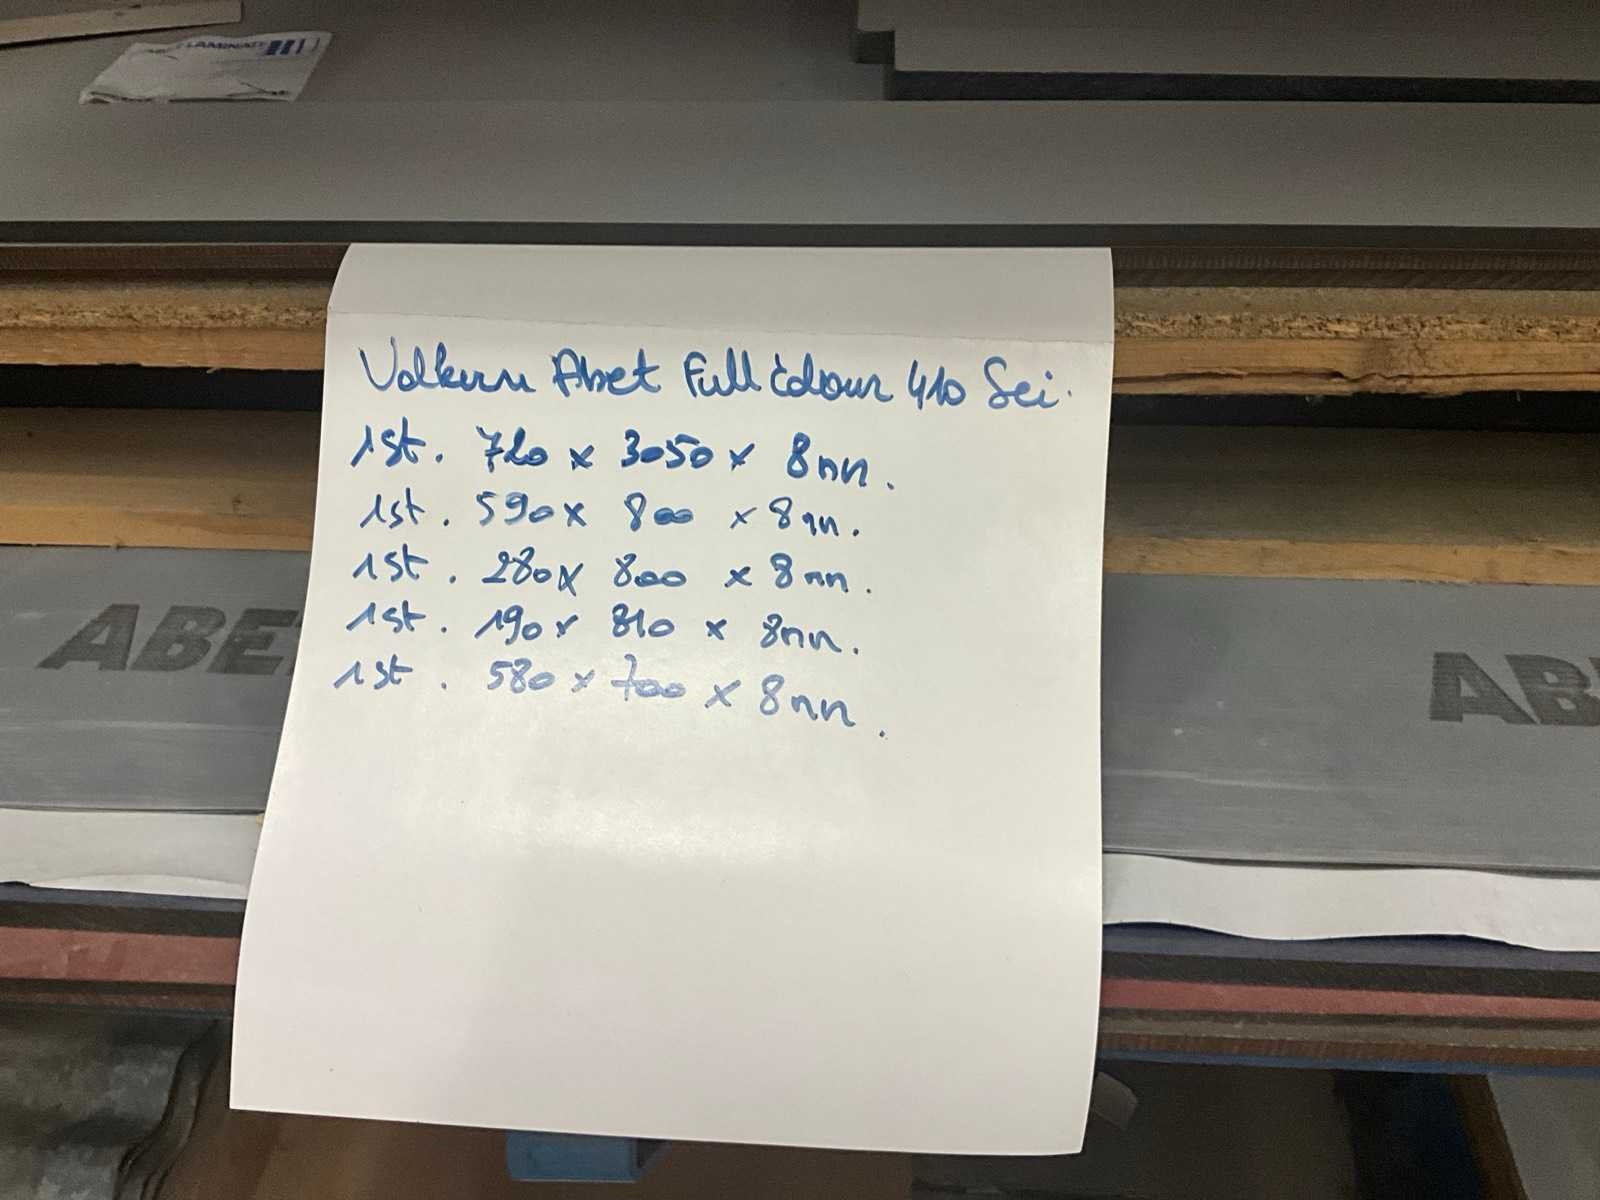 LAMINATI
Volkern Abet Full Colour 410 Sei.
1st. 720 x 3050 x 8mm.
1st. 590 x 800 x 8mm.
1st. 280 x 800 x 8mm.
1st. 190 x 810 x 8mm.
1st. 580 x 700 x 8mm.
ABET
AB